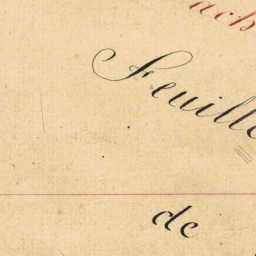 ach
Feuille
de